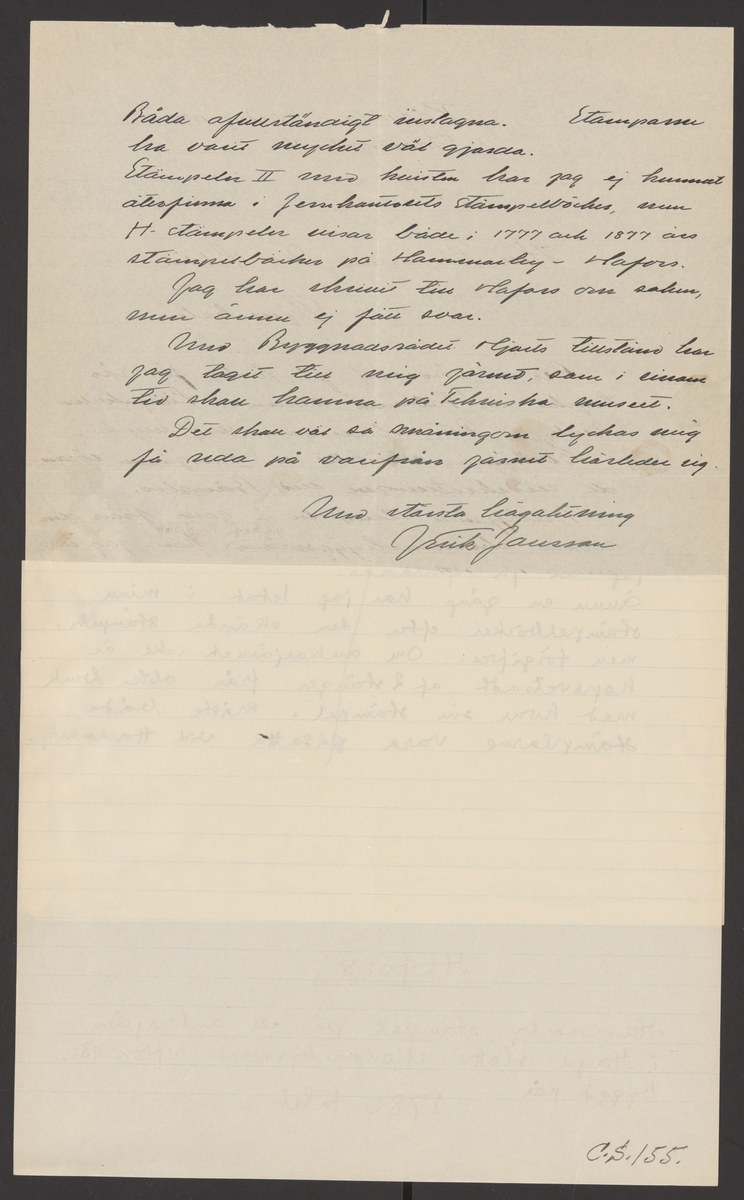 Båda ofullständigt inslagna. Stamparne
ha varit mycket väl gjorda.
Stämpeln II med kvisten har jag ej kunnat
återfinna i Jernkontorets stämpelböcker, men
H-stämpeln visar både i 1777 och 1877 års
stämpelböcker på Hammarby - Hofors.
Jag har skrivit till Hofors om saken,
men ännu ej fått svar.
Med Byggnadsrådet Hjorts tillstånd har
jag tagit till mig järnet, som i sinom
tid skall hamna på Tekniska museet.
Det skall väl så småningom lyckas mig
få reda på varifrån järnet härleder sig.
Med största högaktning
Erik Jansson
ännu en gång har jag letat i mina
stämpelböcker efter den okända stämpeln
men förgäfves. Om ankarjärnet icke är
hopsvetsadt af 2 stänger från olika bruk
med hvar sin stämpel, måste båda
stämplarne vara påsatta vid
Hofors
1780 talet
C.S. 155.